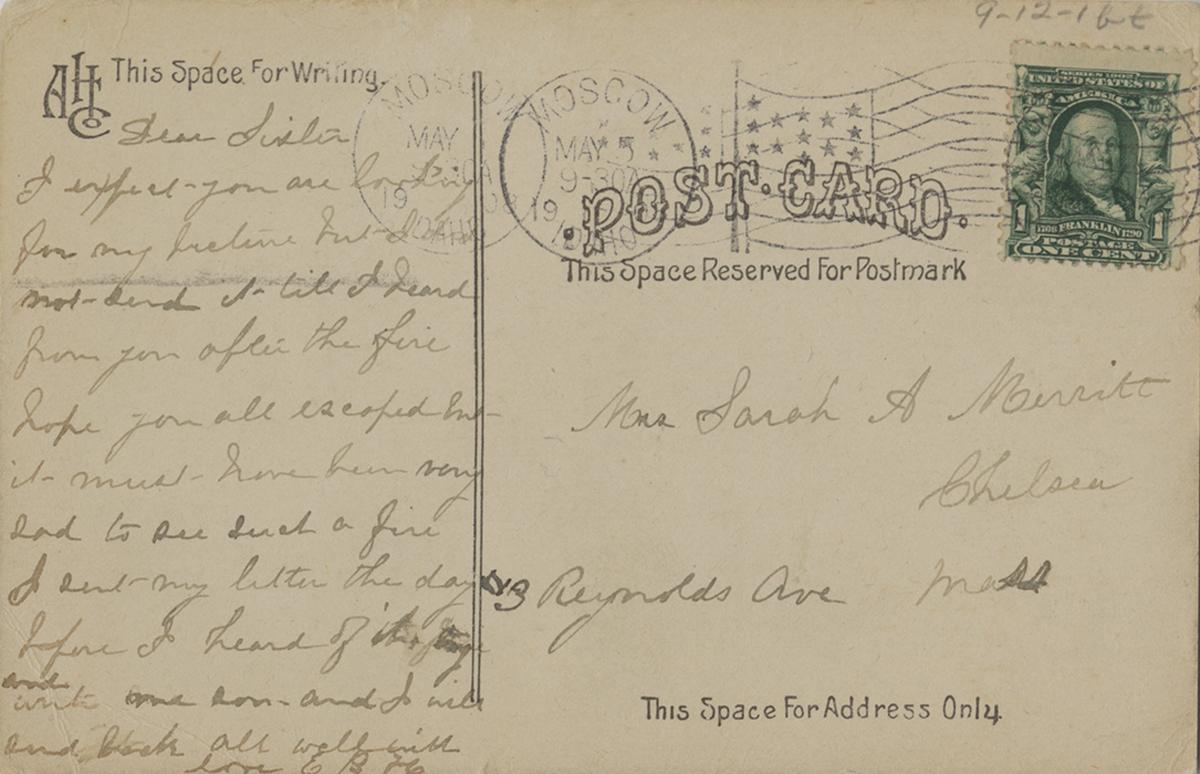 9-12-1
AHC
Co
This Space For Writing.
Dear Sister
I expect you are looking
for my picture but I did
not send it till I heard
from you after the fire
hope you all escaped but
it must have been very
sad to see such a fire
I sent my letter the day
before I heard of it
and
write me soon and I will
send back all well with
love E B H
MOSCOW
MAY
30A
19
IDAHO
MOSCOW
MAY 5
9-30A
19
IDAHO
POST CARD.
This Space Reserved For Postmark
SERIES 1902
UNITED STATES OF
AMERICA
1 1
1706 FRANKLIN 1790
POSTAGE
ONE CENT
Mrs Sarah A Merritt
Chelsea
43 Reynolds Ave Mass
This Space For Address Only